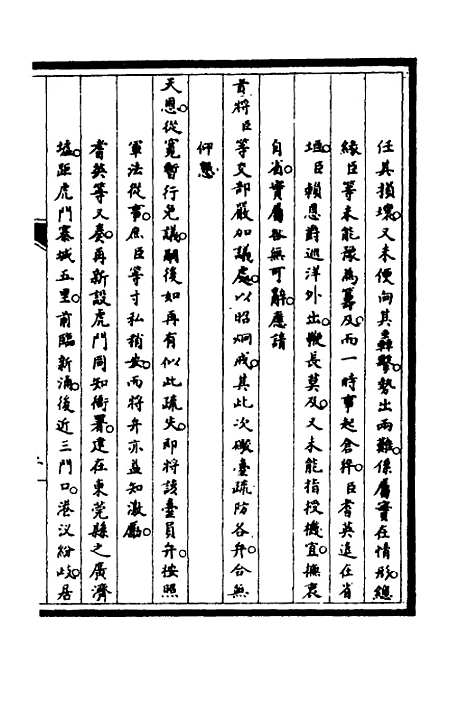 任其損壞又未便向其轟擊勢出兩難係屬實在情形總
緣臣等未能豫為籌及而一時事起倉猝臣耆英遠在省
垣臣賴恩爵巡洋外出鞭長莫及又未能指授機宜撫衷
自省實屬咎無可辭應請
旨將臣等交部嚴加議處以昭炯戒其此次礮臺疏防各弁合無
仰懇
天恩從寬暫行免議嗣後如再有似此疏失即將該臺員弁按照
軍法從事庶臣等寸私稍安而將弁亦益知激勵
耆英等又奏再新設虎門同知衙署建在東莞縣之廣濟
墟距虎門寨城五里前臨新涌後近三門口港汊紛歧居